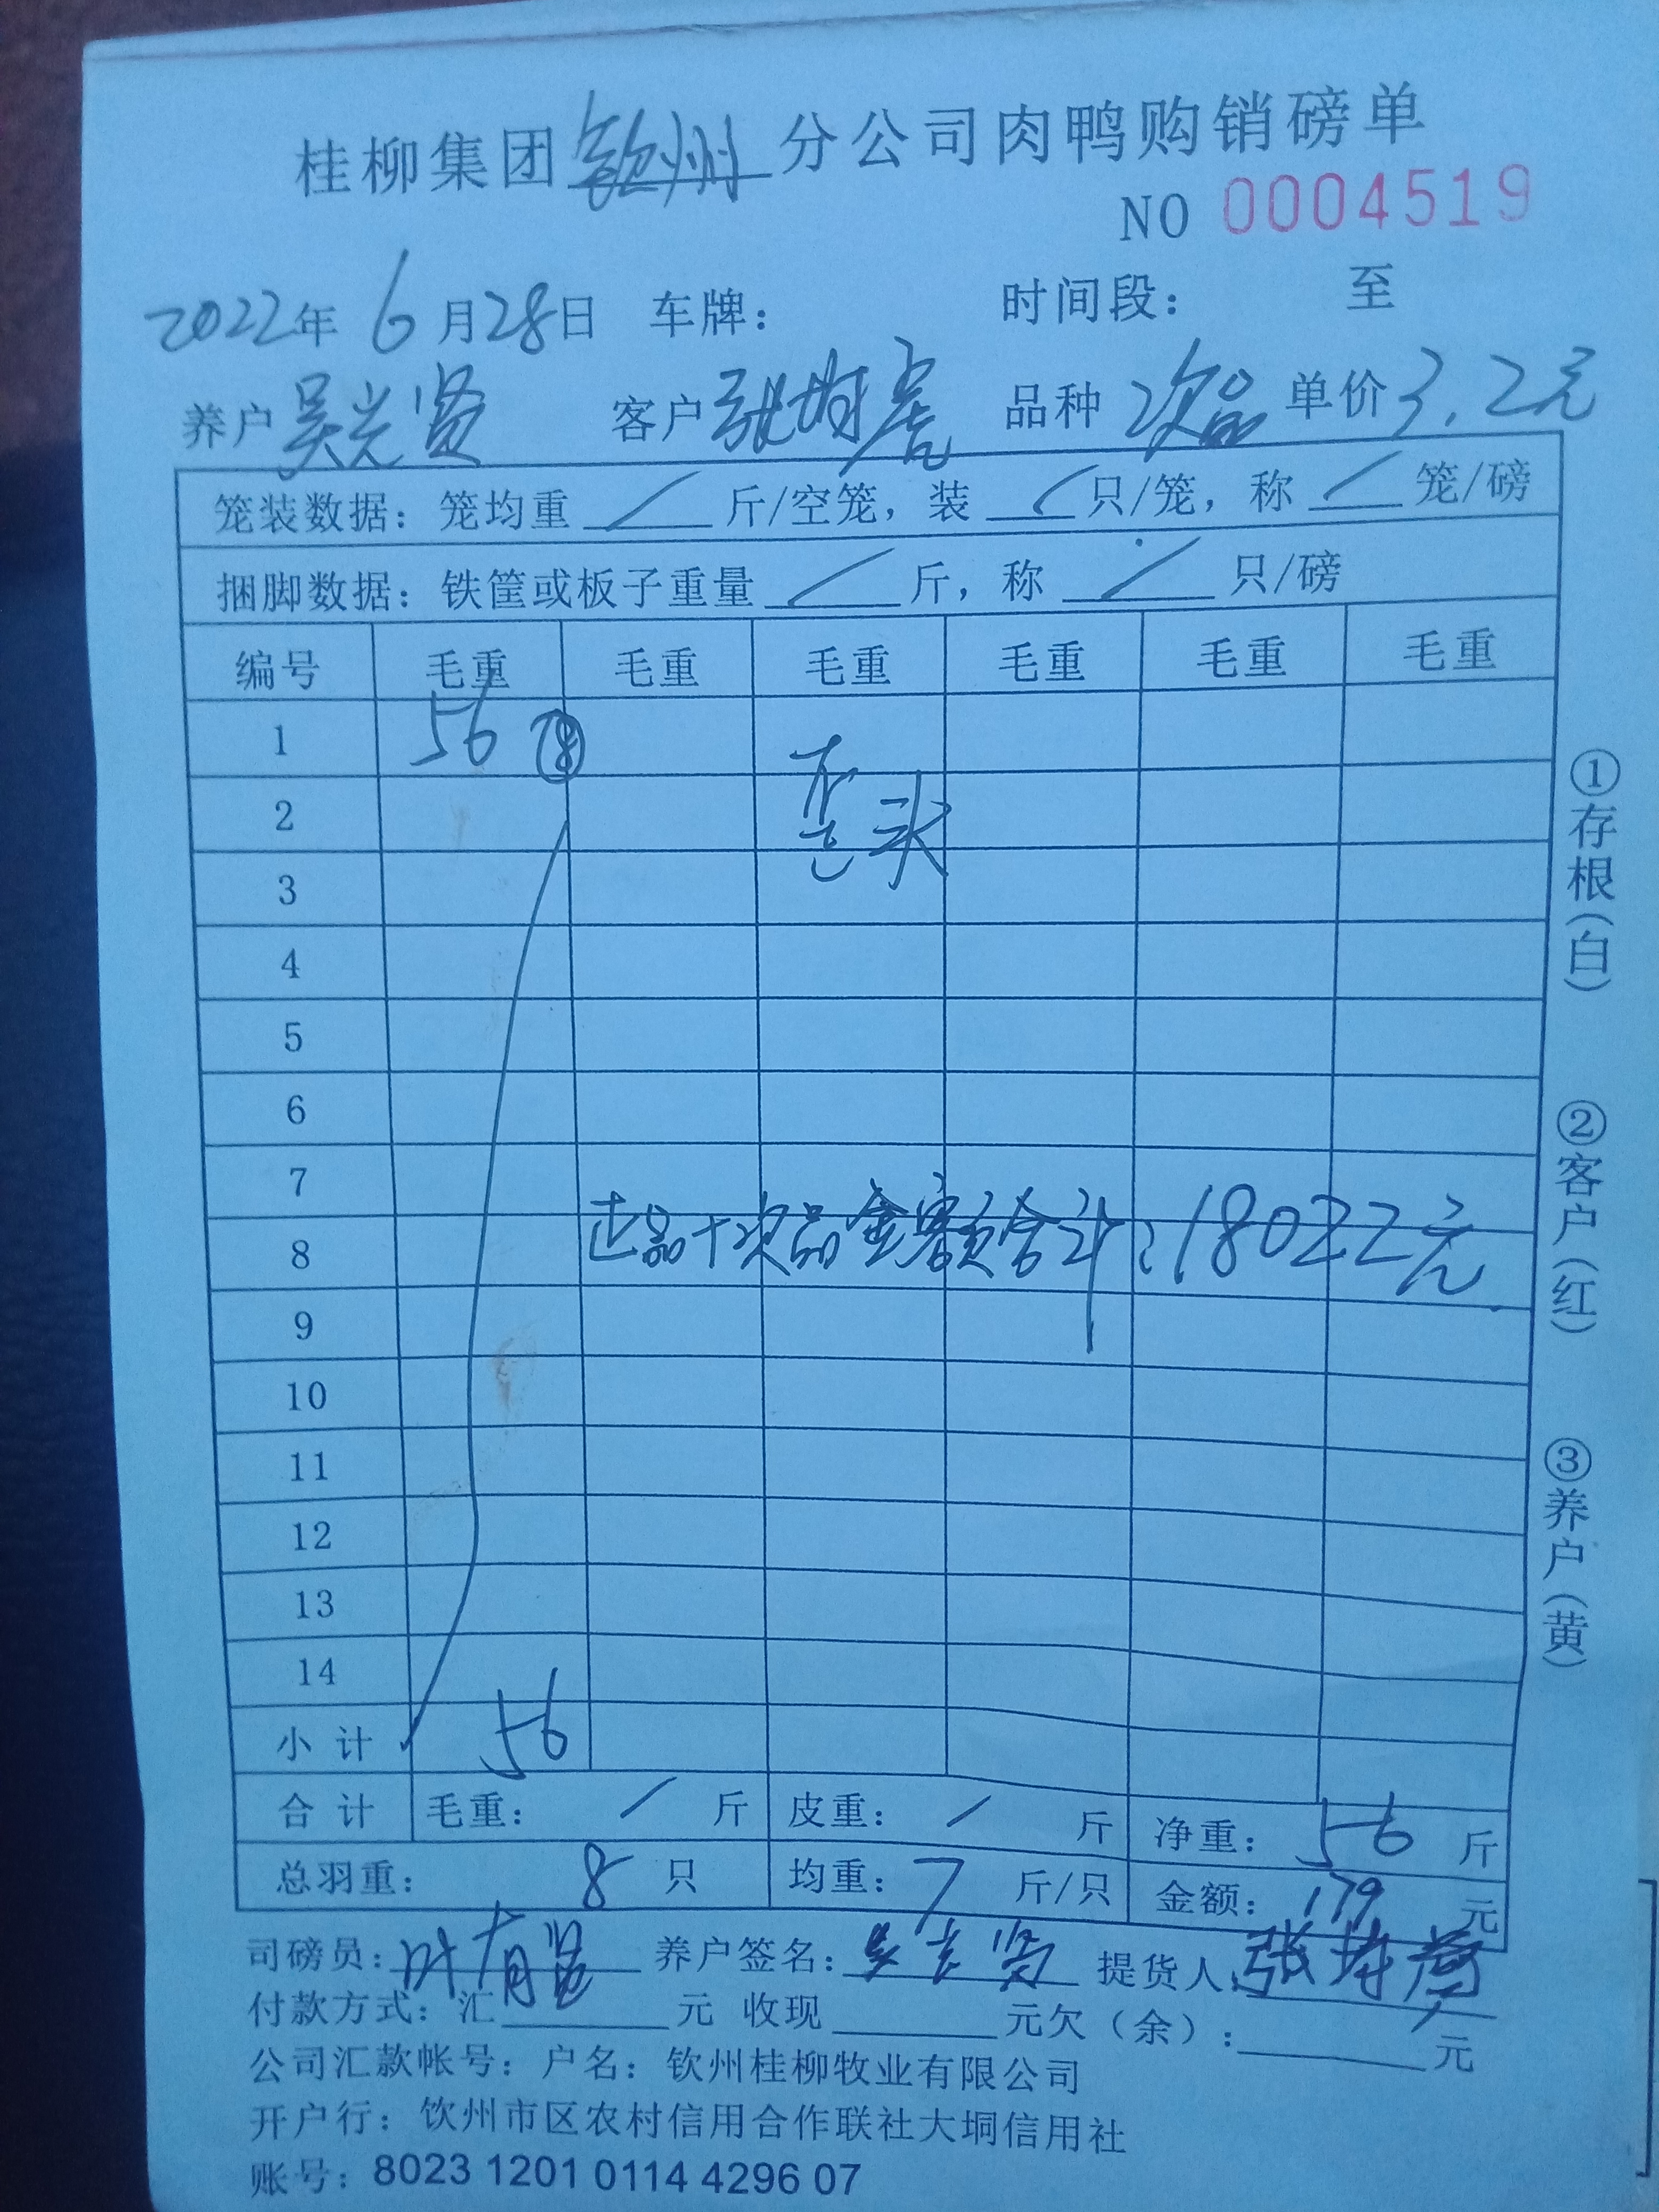 桂柳集团钦州分公司肉鸭购销磅单
NO 0004519
2022年 6月28日 车牌： 时间段： 至
养户 吴光贤 客户 张 品种 次品 单价 3.2元
笼装数据：笼均重 / 斤/空笼，装 / 只/笼，称 / 笼/磅
捆脚数据：铁筐或板子重量 / 斤，称 / 只/磅
编号 毛重 毛重 毛重 毛重 毛重 毛重
1 56 ⑧
歪头
2
3
4
5
6
7
正品+次品金额合计：18022元
8
9
10
11
12
13
14
小计 56
合计 毛重： / 斤 皮重： / 斤 净重： 56 斤
总羽重： 8 只 均重： 7 斤/只 金额： 179 元
司磅员：叶有 养户签名：吴光贤 提货人：张
付款方式：汇 元 收现 元欠（余）： 元
公司汇款帐号：户名：钦州桂柳牧业有限公司
开户行：钦州市区农村信用合作联社大垌信用社
账号：8023 1201 0114 4296 07
①存根（白）
②客户（红）
③养户（黄）